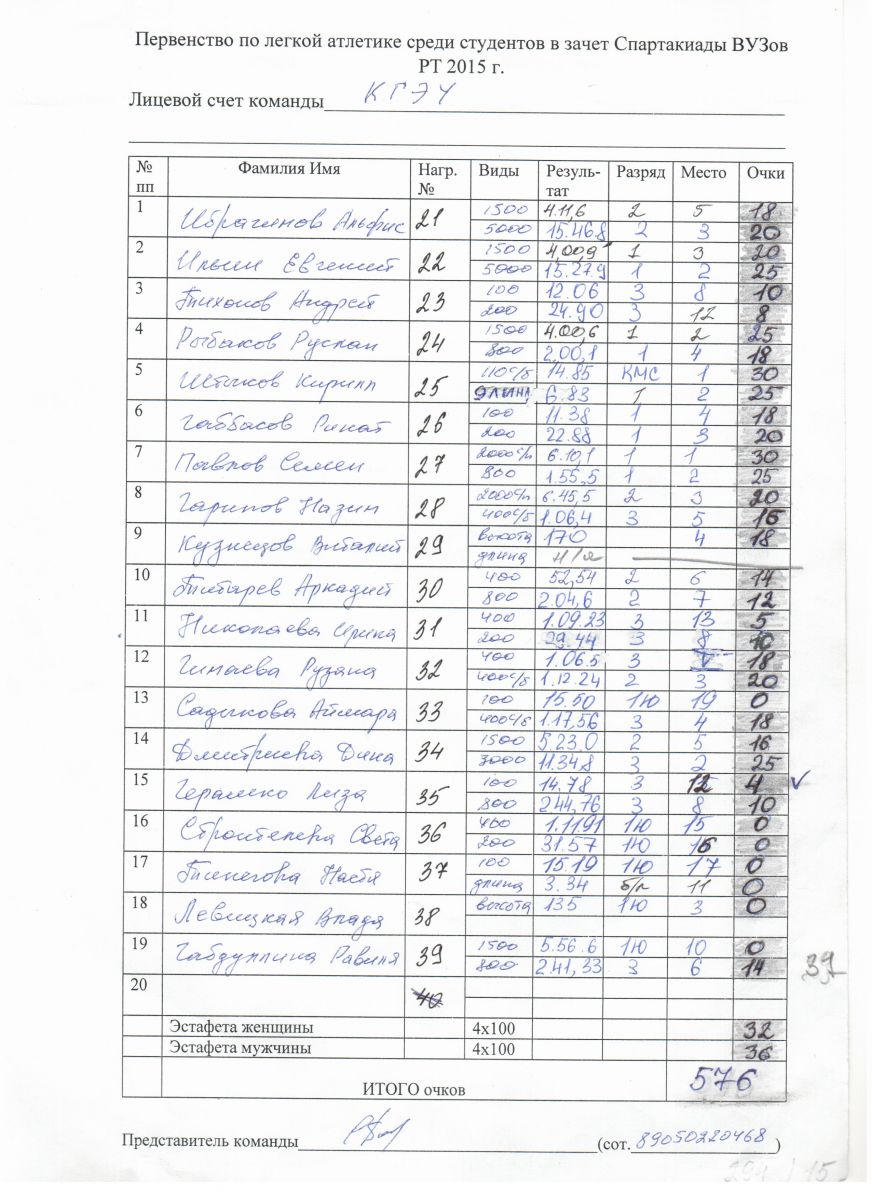 Первенство по легкой атлетике среди студентов в зачет Спартакиады ВУЗов
РТ 2015 г.
Лицевой счет команды КГЭУ
№ пп Фамилия Имя Нагр. № Виды Резуль-тат Разряд Место Очки
1 Ибрагимов Альфис 21 1500 4.11,6 2 5 18
5000 15.46.8 2 3 20
2 Ильин Евгений 22 1500 4,00,9 1 3 20
5000 15.27.9 1 2 25
3 Тихонов Андрей 23 100 12.06 3 8 10
200 24.90 3 12 8
4 Рыбаков Руслан 24 1500 4.00,6 1 2 25
800 2,00,1 1 4 18
5 Кирилл 25 110 с/б 14.85 КМС 1 30
длина 6.83 1 2 25
6 Габбасов Ринат 26 100 11.38 1 4 18
200 22.88 1 3 20
7 Павлов Семен 27 2000 с/п 6.10,1 1 1 30
800 1.55,5 1 2 25
8 Гарипов Назим 28 2000 с/п 6.45,5 2 3 20
400 с/б 1.06,4 3 5 16
9 Кузнецов Виталий 29 высота 170 4 18
длина н/я
10 Титарев Аркадий 30 400 52,54 2 6 14
800 2.04,6 2 7 12
11 Николаева Ирина 31 400 1.09.23 3 13 5
200 29.44 3 8 10
12 Гинаева Рузана 32 400 1.06.5 3 18
400 с/б 1.12.24 2 3 20
13 Садыкова Аймара 33 100 15.50 1ю 19 0
400 с/б 1.17,56 3 4 18
14 Дмитриева Дина 34 1500 5.23.0 2 5 16
3000 11.34.8 3 2 25
15 Геращенко Лиза 35 100 14.78 3 12 4
800 2.44,76 3 8 10
16 Строителева Света 36 400 1.1191 1ю 15 0
200 31.57 1ю 16 0
17 Тинегова Настя 37 100 15.19 1ю 17 0
длина 3.34 б/р 11 0
18 Левицкая Влада 38 высота 135 1ю 3 0
19 Габдуллина Равиля 39 1500 5.56.6 1ю 10 0
800 2.41,33 3 6 14
39
20 40
Эстафета женщины 4х100 32
Эстафета мужчины 4х100 36
ИТОГО очков 576
Представитель команды (сот. 89050220468 )